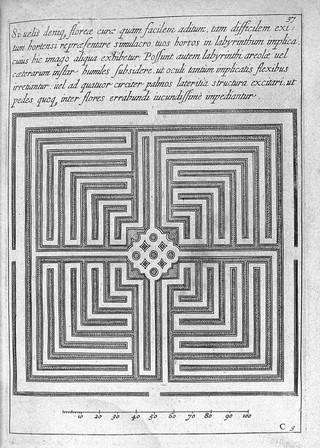 37
Si uelis deniq, floreæ curæ quam facilem aditum, tam difficilem exi-
tum hortensi repræsentare simulacro, tuos hortos in labyrinthum implica,
cuius hic imago aliqua exhibetur. Possunt autem labyrinthi areolæ uel
cæterarum instar humiles subsidere, ut oculi tantum implicatis flexibus
irretiantur: uel ad quatuor circiter palmos lateritia structura excitari, ut
pedes quoq, inter flores errabundi iucundissimè impediantur.
10 20 30 40 50 60 70 80 90 100
C 3